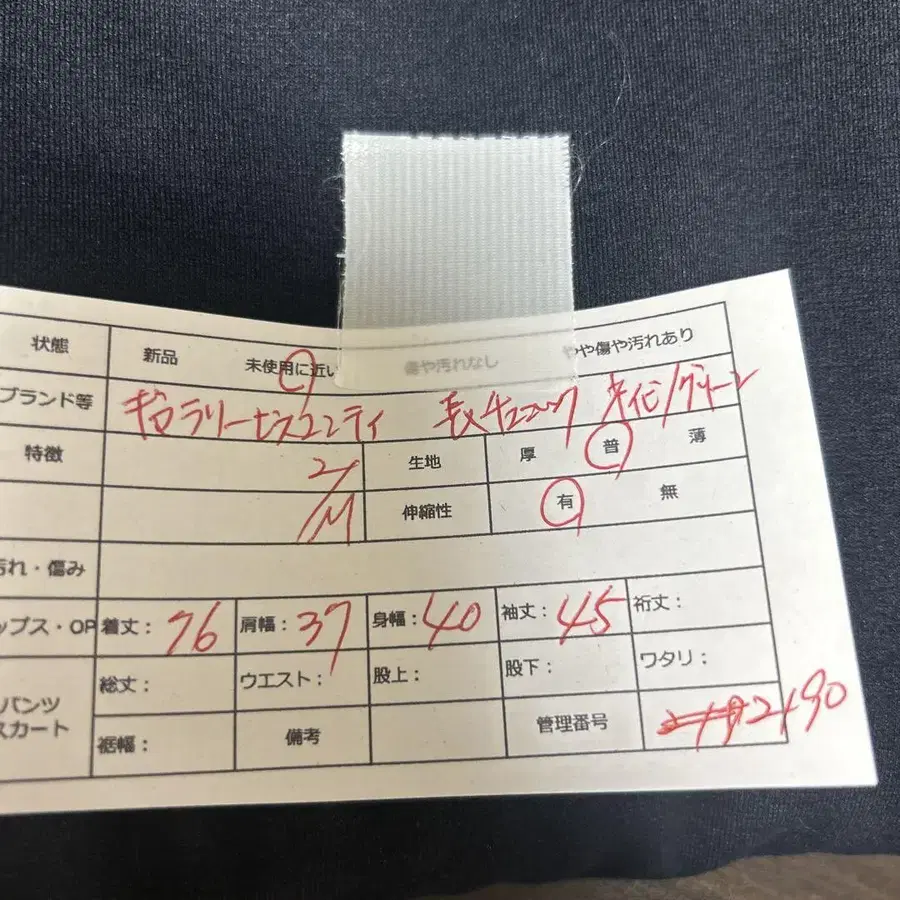 状態 新品 未使用に近い 傷や汚れなし やや傷や汚れあり
ブランド等 ギャラリービスコンティ 長チュニック ネイビー/グリーン
特徴 2/M 生地 厚 普 薄
伸縮性 有 無
汚れ・傷み
ップス・OP 着丈: 76 肩幅: 37 身幅: 40 袖丈: 45 裄丈:
パンツ スカート 総丈: ウエスト: 股上: 股下: ワタリ:
裾幅: 備考 管理番号 2190